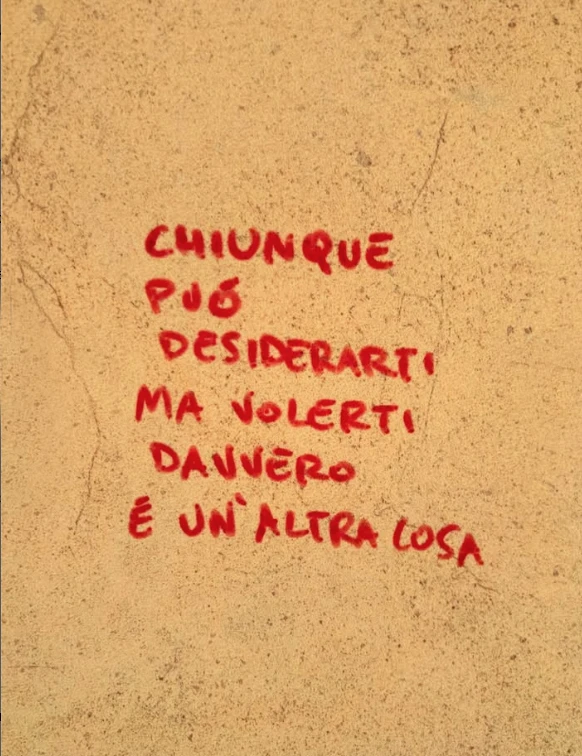 CHIUNQUE
PUÓ
DESIDERARTI
MA VOLERTI
DAVVERO
É UN'ALTRA COSA